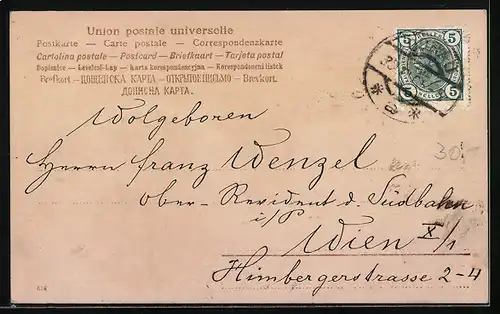 Union postale universelle
Postkarte — Carte postale — Correspondenzkarte
Cartolina postale — Postcard — Briefkaart — Tarjeta postal
Dopisnice — Levelező-Lap — karta korespondencyjna — Korespondenční lístek
Brefkort — ПОЩЕНСКА КАРТА — ОТКРЫТОЕ ПИСЬМО — Brevkort.
ДОПИСНА КАРТА.
5 5
Wolgeboren
Herrn Franz Wenzel
Ober-Revident d. Südbahn
i/P
Wien X/1
Himbergerstrasse 2-4
30,-